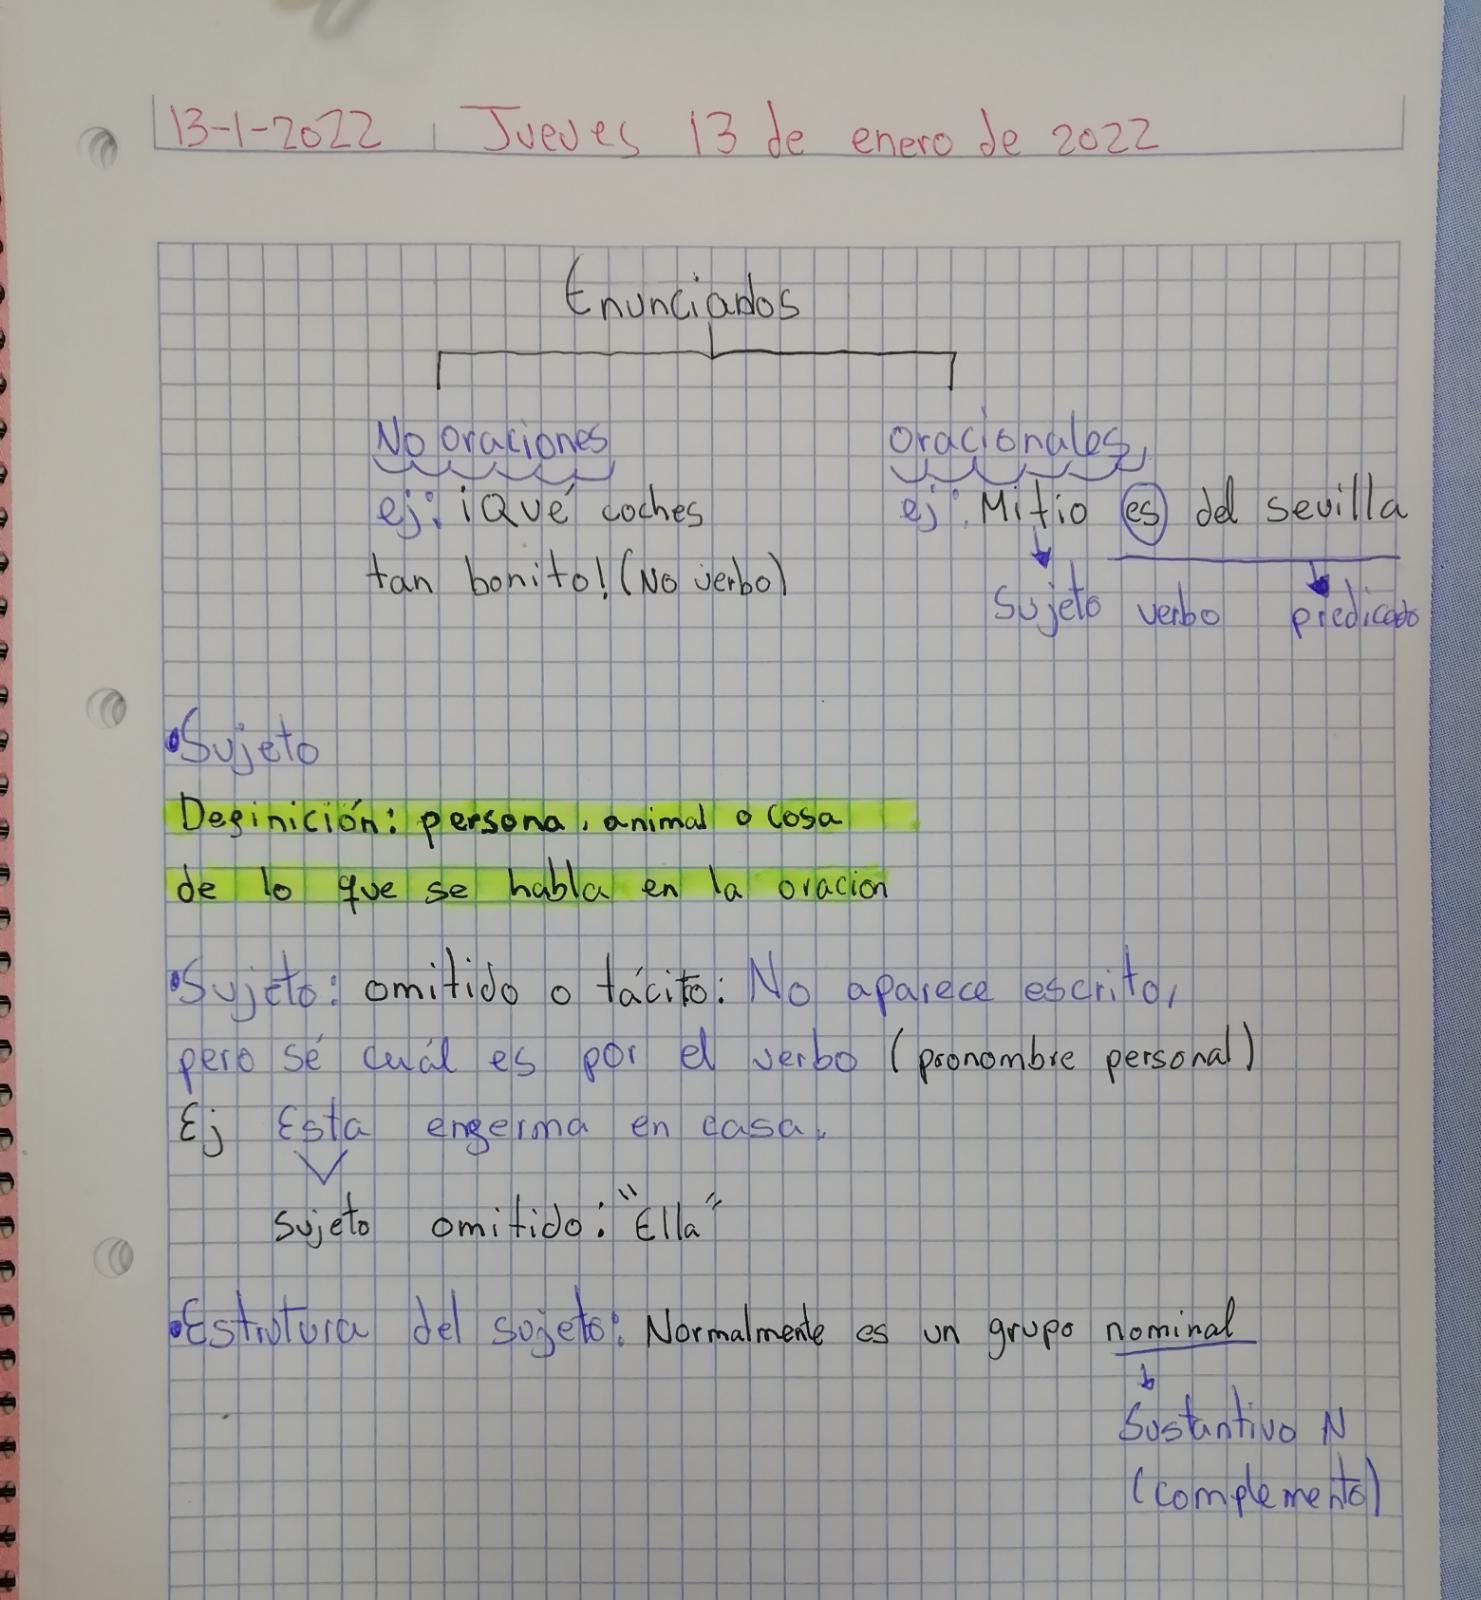 13-1-2022 Jueves 13 de enero de 2022
Enunciados
No oraciones oracionales
ej: ¡Qué coches ej: Mi tio es del sevilla
tan bonito! (No verbo)
Sujeto verbo predicado
•Sujeto
Definición: persona, animal o cosa
de lo que se habla en la oracion
•Sujeto: omitido o tácito: No aparece escrito,
pero sé cuál es por el verbo (pronombre personal)
Ej Esta enferma en casa.
Sujeto omitido: "Ella"
•Estrutura del sujeto: Normalmente es un grupo nominal
Sustantivo N
(complemento)